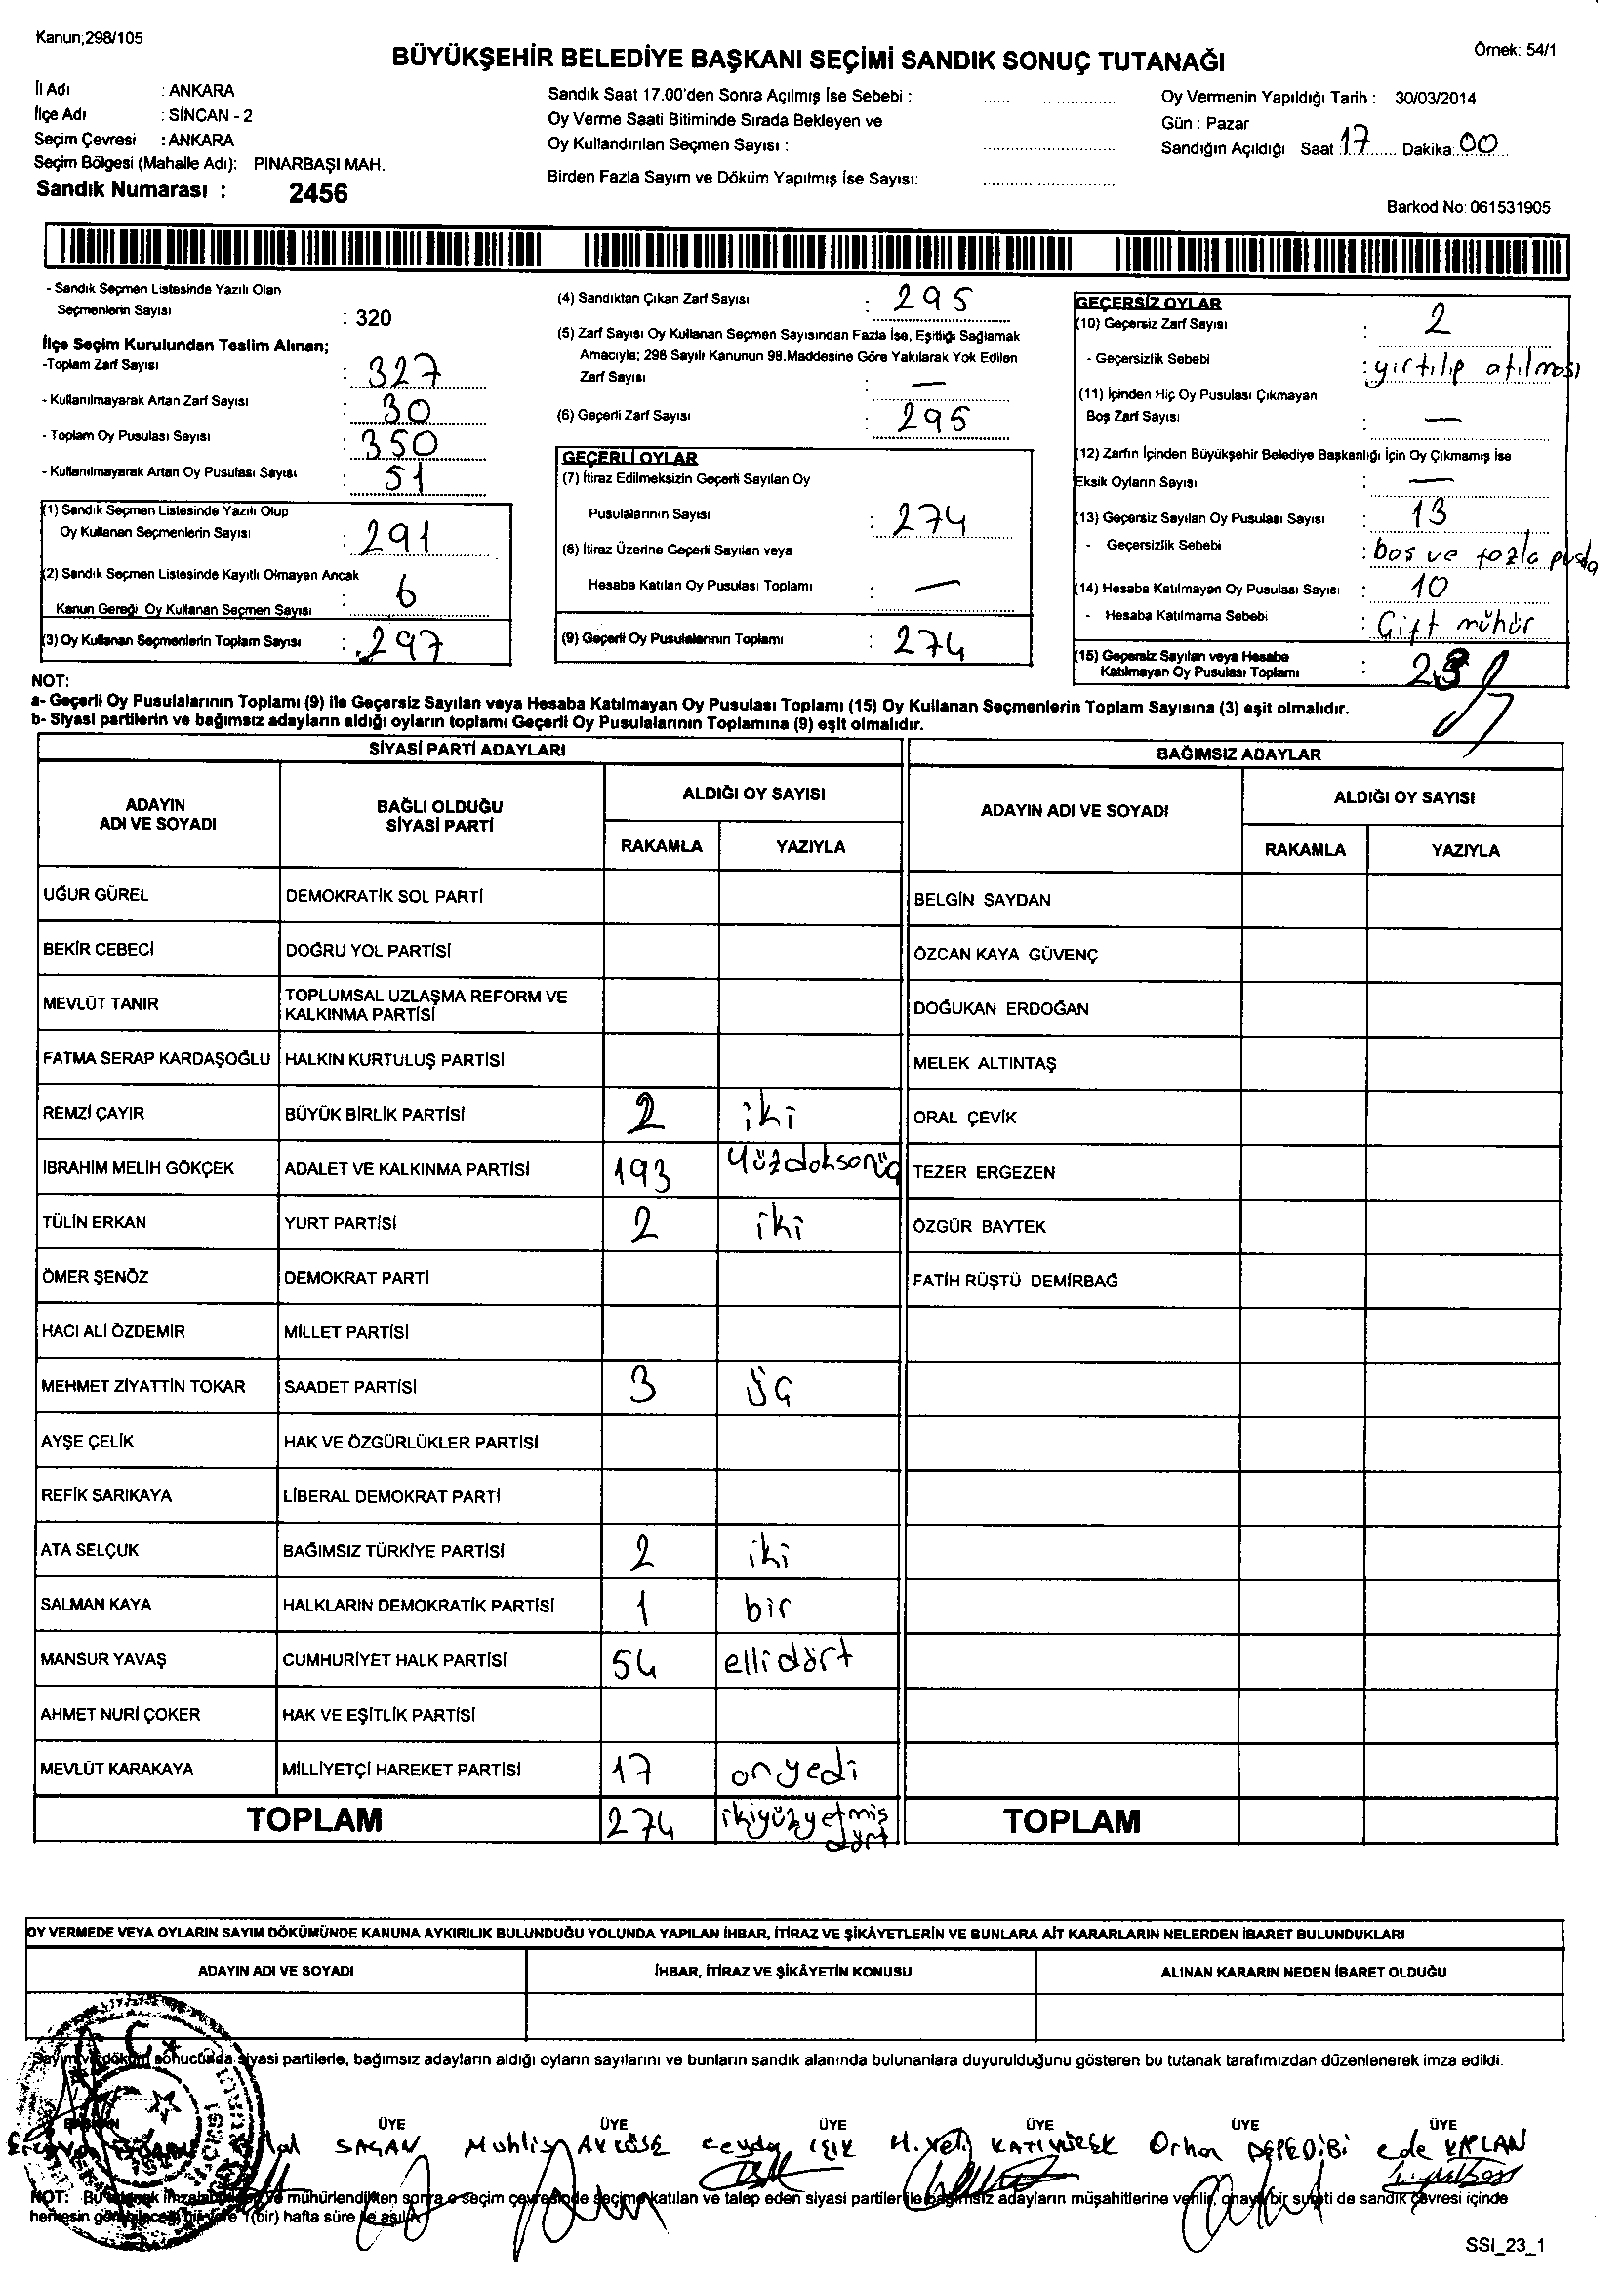 Kanun;298/105
Örnek: 54/1
BÜYÜKŞEHİR BELEDİYE BAŞKANI SEÇİMİ SANDIK SONUÇ TUTANAĞI
İl Adı : ANKARA
İlçe Adı : SİNCAN - 2
Seçim Çevresi : ANKARA
Seçim Bölgesi (Mahalle Adı): PINARBAŞI MAH.
Sandık Numarası : 2456
Sandık Saat 17.00'den Sonra Açılmış İse Sebebi :
Oy Verme Saati Bitiminde Sırada Bekleyen ve
Oy Kullandırılan Seçmen Sayısı :
Birden Fazla Sayım ve Döküm Yapılmış İse Sayısı:
Oy Vermenin Yapıldığı Tarih : 30/03/2014
Gün : Pazar
Sandığın Açıldığı Saat : 17 Dakika: 00
Barkod No: 061531905
- Sandık Seçmen Listesinde Yazılı Olan
Seçmenlerin Sayısı : 320
İlçe Seçim Kurulundan Teslim Alınan;
-Toplam Zarf Sayısı : 327
- Kullanılmayarak Artan Zarf Sayısı : 30
- Toplam Oy Pusulası Sayısı : 350
- Kullanılmayarak Artan Oy Pusulası Sayısı : 51
(1) Sandık Seçmen Listesinde Yazılı Olup
Oy Kullanan Seçmenlerin Sayısı : 291
(2) Sandık Seçmen Listesinde Kayıtlı Olmayan Ancak
Kanun Gereği Oy Kullanan Seçmen Sayısı : 6
(3) Oy Kullanan Seçmenlerin Toplam Sayısı : 297
(4) Sandıktan Çıkan Zarf Sayısı : 295
(5) Zarf Sayısı Oy Kullanan Seçmen Sayısından Fazla İse, Eşitliği Sağlamak
Amacıyla; 298 Sayılı Kanunun 98.Maddesine Göre Yakılarak Yok Edilen
Zarf Sayısı : —
(6) Geçerli Zarf Sayısı : 295
GEÇERLİ OYLAR
(7) İtiraz Edilmeksizin Geçerli Sayılan Oy
Pusulalarının Sayısı : 274
(8) İtiraz Üzerine Geçerli Sayılan veya
Hesaba Katılan Oy Pusulası Toplamı : —
(9) Geçerli Oy Pusulalarının Toplamı : 274
GEÇERSİZ OYLAR
(10) Geçersiz Zarf Sayısı : 2
- Geçersizlik Sebebi : yırtılıp atılması
(11) İçinden Hiç Oy Pusulası Çıkmayan
Boş Zarf Sayısı : —
(12) Zarfın İçinden Büyükşehir Belediye Başkanlığı İçin Oy Çıkmamış İse
Eksik Oyların Sayısı : —
(13) Geçersiz Sayılan Oy Pusulası Sayısı : 13
- Geçersizlik Sebebi : boş ve fazla pusla
(14) Hesaba Katılmayan Oy Pusulası Sayısı : 10
- Hesaba Katılmama Sebebi : Çift mühür
(15) Geçersiz Sayılan veya Hesaba
Katılmayan Oy Pusulası Toplamı : 23
NOT:
a- Geçerli Oy Pusulalarının Toplamı (9) ile Geçersiz Sayılan veya Hesaba Katılmayan Oy Pusulası Toplamı (15) Oy Kullanan Seçmenlerin Toplam Sayısına (3) eşit olmalıdır.
b- Siyasi partilerin ve bağımsız adayların aldığı oyların toplamı Geçerli Oy Pusulalarının Toplamına (9) eşit olmalıdır.
SİYASİ PARTİ ADAYLARI
ADAYIN ADI VE SOYADI BAĞLI OLDUĞU SİYASİ PARTİ ALDIĞI OY SAYISI
RAKAMLA YAZIYLA
UĞUR GÜREL DEMOKRATİK SOL PARTİ
BEKİR CEBECİ DOĞRU YOL PARTİSİ
MEVLÜT TANIR TOPLUMSAL UZLAŞMA REFORM VE
KALKINMA PARTİSİ
FATMA SERAP KARDAŞOĞLU HALKIN KURTULUŞ PARTİSİ
REMZİ ÇAYIR BÜYÜK BİRLİK PARTİSİ 2 iki
İBRAHİM MELİH GÖKÇEK ADALET VE KALKINMA PARTİSİ 193 Yüzdoksanüç
TÜLİN ERKAN YURT PARTİSİ 2 iki
ÖMER ŞENÖZ DEMOKRAT PARTİ
HACI ALİ ÖZDEMİR MİLLET PARTİSİ
MEHMET ZİYATTİN TOKAR SAADET PARTİSİ 3 üç
AYŞE ÇELİK HAK VE ÖZGÜRLÜKLER PARTİSİ
REFİK SARIKAYA LİBERAL DEMOKRAT PARTİ
ATA SELÇUK BAĞIMSIZ TÜRKİYE PARTİSİ 2 iki
SALMAN KAYA HALKLARIN DEMOKRATİK PARTİSİ 1 bir
MANSUR YAVAŞ CUMHURİYET HALK PARTİSİ 54 ellidört
AHMET NURİ ÇOKER HAK VE EŞİTLİK PARTİSİ
MEVLÜT KARAKAYA MİLLİYETÇİ HAREKET PARTİSİ 17 onyedi
TOPLAM 274 ikiyüzyetmiş
dört
BAĞIMSIZ ADAYLAR
ADAYIN ADI VE SOYADI ALDIĞI OY SAYISI
RAKAMLA YAZIYLA
BELGİN SAYDAN
ÖZCAN KAYA GÜVENÇ
DOĞUKAN ERDOĞAN
MELEK ALTINTAŞ
ORAL ÇEVİK
TEZER ERGEZEN
ÖZGÜR BAYTEK
FATİH RÜŞTÜ DEMİRBAĞ
TOPLAM
OY VERMEDE VEYA OYLARIN SAYIM DÖKÜMÜNDE KANUNA AYKIRILIK BULUNDUĞU YOLUNDA YAPILAN İHBAR, İTİRAZ VE ŞİKÂYETLERİN VE BUNLARA AİT KARARLARIN NELERDEN İBARET BULUNDUKLARI
ADAYIN ADI VE SOYADI İHBAR, İTİRAZ VE ŞİKÂYETİN KONUSU ALINAN KARARIN NEDEN İBARET OLDUĞU
Sayım ve döküm sonucunda siyasi partilerle, bağımsız adayların aldığı oyların sayılarını ve bunların sandık alanında bulunanlara duyurulduğunu gösteren bu tutanak tarafımızdan düzenlenerek imza edildi.
ÜYE ÜYE ÜYE ÜYE ÜYE ÜYE
SAĞAN Muhlis AKKÖSE Ceyda IŞIK Orhan DEPEDİBİ Ede KAPLAN
NOT: Bu tutanak imzalanıp ve mühürlendikten sonra o seçim çevresinde seçime katılan ve talep eden siyasi partiler ile bağımsız adayların müşahitlerine verilir, onaylı bir sureti de sandık çevresi içinde
herkesin görebileceği bir yere 1(bir) hafta süre ile asılır.
SSI_23_1